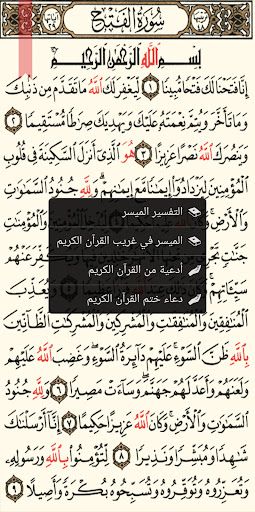 سُورَةُ الْفَتْحِ
بِسْمِ اللَّهِ الرَّحْمَٰنِ الرَّحِيمِ
إِنَّا فَتَحْنَا لَكَ فَتْحًا مُّبِينًا ١ لِّيَغْفِرَ لَكَ اللَّهُ مَا تَقَدَّمَ مِن ذَنبِكَ
وَمَا تَأَخَّرَ وَيُتِمَّ نِعْمَتَهُ عَلَيْكَ وَيَهْدِيَكَ صِرَاطًا مُّسْتَقِيمًا ٢
وَيَنصُرَكَ اللَّهُ نَصْرًا عَزِيزًا ٣ هُوَ الَّذِي أَنزَلَ السَّكِينَةَ فِي قُلُوبِ
الْمُؤْمِنِينَ لِيَزْدَادُوا إِيمَانًا مَّعَ إِيمَانِهِمْ وَلِلَّهِ جُنُودُ السَّمَاوَاتِ
وَالْأَرْضِ وَالْمُؤْمِنَاتِ
التفسير الميسر
الميسر في غريب القرآن الكريم
أدعية من القرآن الكريم
دعاء ختم القرآن الكريم
جَنَّاتٍ عَنْهُمْ
سَيِّئَاتِهِمْ وَيُعَذِّبَ
الْمُنَافِقِينَ وَالْمُنَافِقَاتِ وَالْمُشْرِكِينَ وَالْمُشْرِكَاتِ الظَّانِّينَ
بِاللَّهِ ظَنَّ السَّوْءِ عَلَيْهِمْ دَائِرَةُ السَّوْءِ وَغَضِبَ اللَّهُ عَلَيْهِمْ
وَلَعَنَهُمْ وَأَعَدَّ لَهُمْ جَهَنَّمَ وَسَاءَتْ مَصِيرًا ٦ وَلِلَّهِ جُنُودُ
السَّمَاوَاتِ وَالْأَرْضِ وَكَانَ اللَّهُ عَزِيزًا حَكِيمًا ٧ إِنَّا أَرْسَلْنَاكَ
شَاهِدًا وَمُبَشِّرًا وَنَذِيرًا ٨ لِّتُؤْمِنُوا بِاللَّهِ وَرَسُولِهِ
وَتُعَزِّرُوهُ وَتُوَقِّرُوهُ وَتُسَبِّحُوهُ بُكْرَةً وَأَصِيلًا ٩